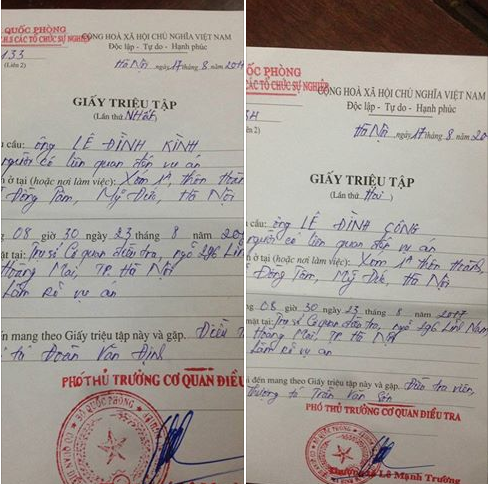 QUỐC PHÒNG
.H.S CÁC TỔ CHỨC SỰ NGHIỆP
CỘNG HOÀ XÃ HỘI CHỦ NGHĨA VIỆT NAM
Độc lập - Tự do - Hạnh phúc
133
(Liên 2)
Hà Nội ngày 17 tháng 8 năm 201
GIẤY TRIỆU TẬP
(Lần thứ Nhất
cầu: ông LÊ ĐÌNH KÌNH
người có liên quan đến vụ án
ở tại (hoặc nơi làm việc): Xóm 1A, thôn Hoành
Đồng Tâm, Mỹ Đức, Hà Nội
08 giờ 30 ngày 23 tháng 8 năm 20
mặt tại: Trụ sở Cơ quan điều tra, ngõ 296 Lĩnh
Hoàng Mai, TP. Hà Nội
Làm rõ vụ án
đến mang theo Giấy triệu tập này và gặp. Điều
tá Đoàn Văn Định
PHÓ THỦ TRƯỞNG CƠ QUAN ĐIỀU
BỘ QUỐC PHÒNG
ỐC PHÒNG
CÁC TỔ CHỨC SỰ NGHIỆP
CỘNG HOÀ XÃ HỘI CHỦ NGHĨA VIỆT NAM
Độc lập - Tự do - Hạnh phúc
Hà Nội, ngày 17 tháng 8 năm 20
GIẤY TRIỆU TẬP
(Lần thứ Hai )
cầu: ông LÊ ĐÌNH CÔNG
người có liên quan đến vụ án
ở tại (hoặc nơi làm việc): Xóm 1A thôn Hoành,
Đồng Tâm, Mỹ Đức, Hà Nội
08 giờ 30 ngày 23 tháng 8 năm 2017
mặt tại: Trụ sở Cơ quan điều tra, ngõ 296 Lĩnh Nam
Hoàng Mai, TP. Hà Nội
Làm rõ vụ án
đến mang theo Giấy triệu tập này và gặp. Điều tra viên,
Thượng tá Trần Văn Sơn
PHÓ THỦ TRƯỞNG CƠ QUAN ĐIỀU TRA
BỘ QUỐC PHÒNG
Thượng tá Lê Mạnh Trường